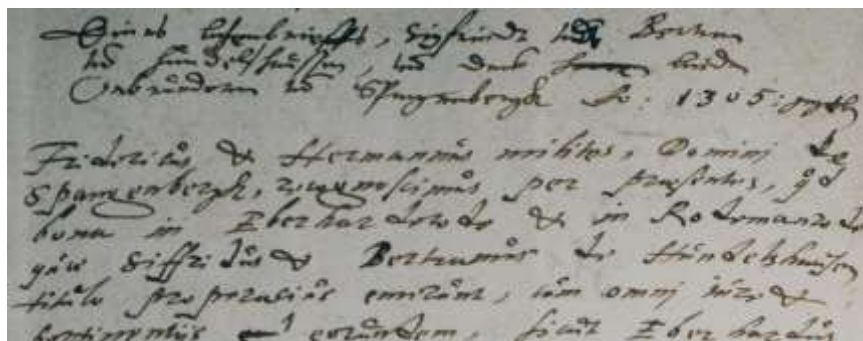 Eines lehenbrieffs, Sigfriedt und Bertram
von Hundelshaussen, von den beiden
Gebrudern von Spangenbergk Ao: 1305:
Fridericus & Hermannus milites, Domini de
Spangenbergk, recognoscimus per præsentes, qd
bona in Eberharderode & in Rodemanrode
quæ Siffridus & Bertramus de Hundelshausen
titulo proprietatis emerunt, cum omni iure &
pertinentiis eorundem, sicut Eberhardus